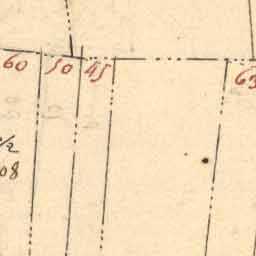 60 50 45 63
1/2
08